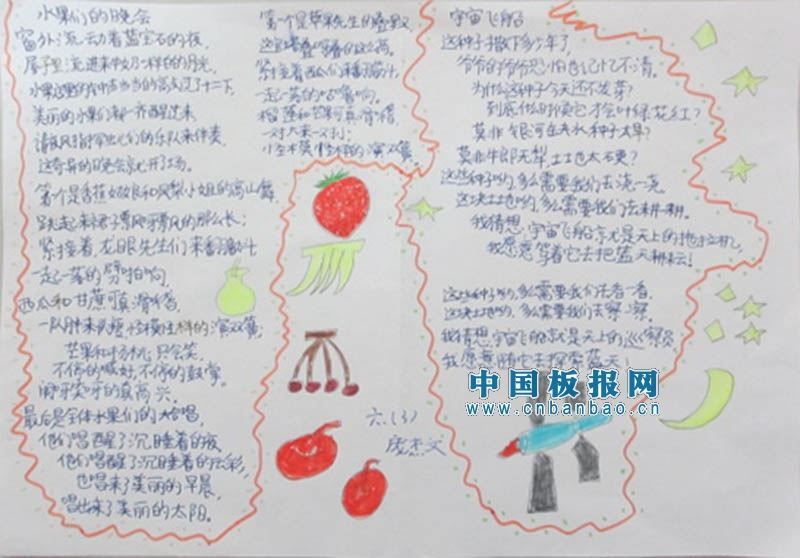 水果们的晚会
窗外流动着蓝宝石的夜,
屋子里流进来牛奶一样的的月光,
水果店里的钟当当当的高支过了十二下,
美丽的水果们都一齐醒过来
请夜风指挥虫们的乐队来伴奏,
这奇异的晚会就开了场。
第一个是香蕉姑娘和凤梨小姐的高山舞
跳起来裙子飘呀飘的那么长;
紧接着,龙眼先生们来翻筋斗
一起一落的劈啪响,
西瓜和甘蔗可真滑稽
一队胖来一队瘦,怪模怪样的演双簧,
芒果和只会笑,
不停的喊好,不停的鼓掌,
闹呀笑呀的真高兴,
最后是全体水果们的大合唱,
他们唱醒了沉睡着的夜
他们唱醒了沉睡着的云彩,
也唱来了美丽的早晨,
唱出来了美丽的太阳。
第一个是苹果先生的叠罗汉
这宝塔叠呀叠的这么高
紧接着西瓜们来翻筋斗
一起一落的咕噜响,
榴莲和芒果可真滑稽
一对大来一对小
小怪模怪样的演双簧
宇宙飞船
这种子撒下多少年了
爷爷的爷爷恐怕也记忆不清,
为什么这种子今天还不发芽?
到底什么时候它才会叶绿花红?
莫非银河在失水种子太旱?
莫非牛郎无犁土地也太硬?
这些种子哟,多么需要我们去浇一浇
这块土地哟,多么需要我们去耕一耕。
我猜想:宇宙飞船就是天上的拖拉机,
我愿意驾着它去把蓝天耕耘!
这些种子哟,多么需要我们去看一看,
这块土地哟,多么需要我们去察一察,
我猜想:宇宙飞船就是天上的巡察员
我愿意随它去探索蓝天!
六(3)
庞杰文
中国板报网
www.cnbanbao.cn